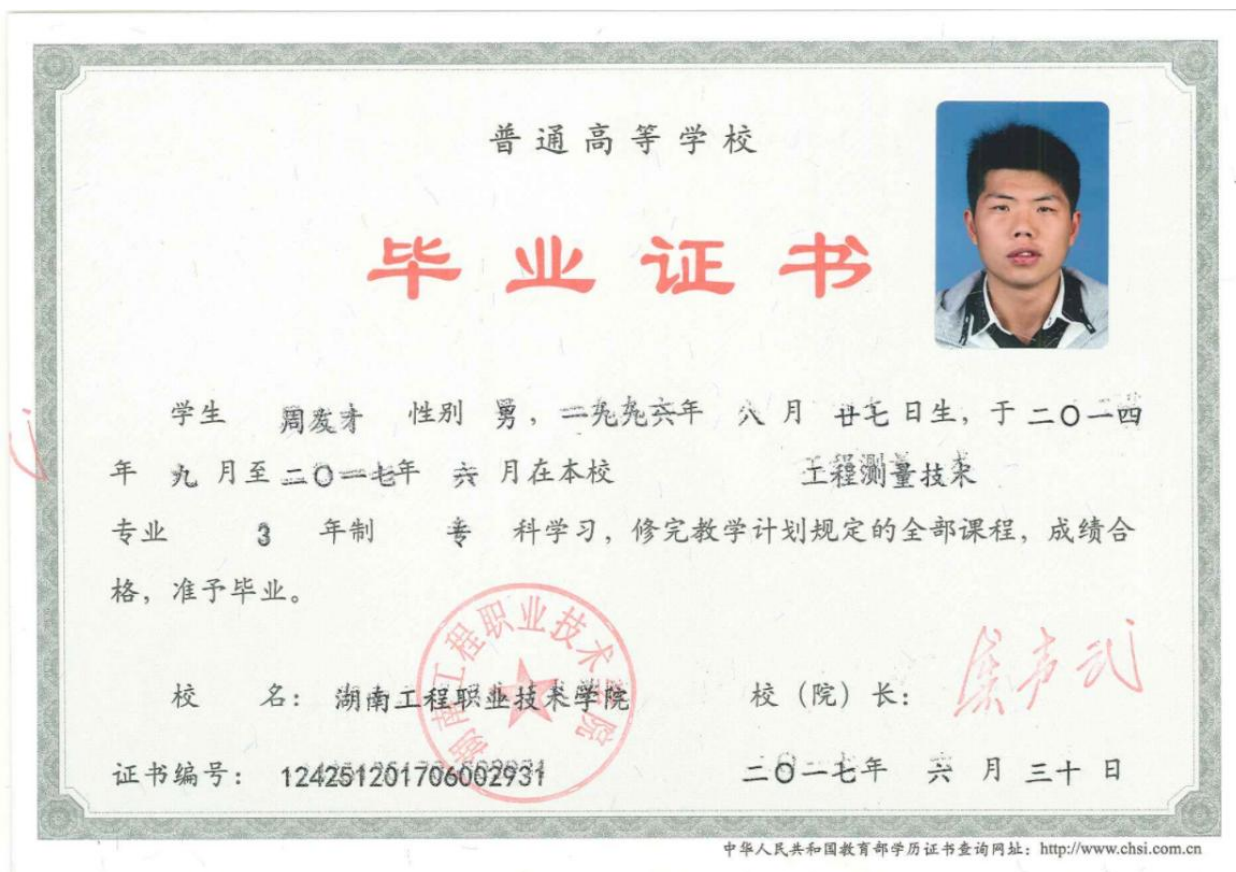 普通高等学校
毕业证书
学生 周发才 性别 男，一九九六年 八 月 廿七 日生，于 二〇一四
年 九 月至 二〇一七年 六 月在本校 工程测量技术
专业 3 年制 专 科学习，修完教学计划规定的全部课程，成绩合
格，准予毕业。
湖南工程职业技术学院
校 名：湖南工程职业技术学院 校（院）长：
证书编号：124251201706002931 二〇一七年 六 月 三十 日
中华人民共和国教育部学历证书查询网址：http://www.chsi.com.cn